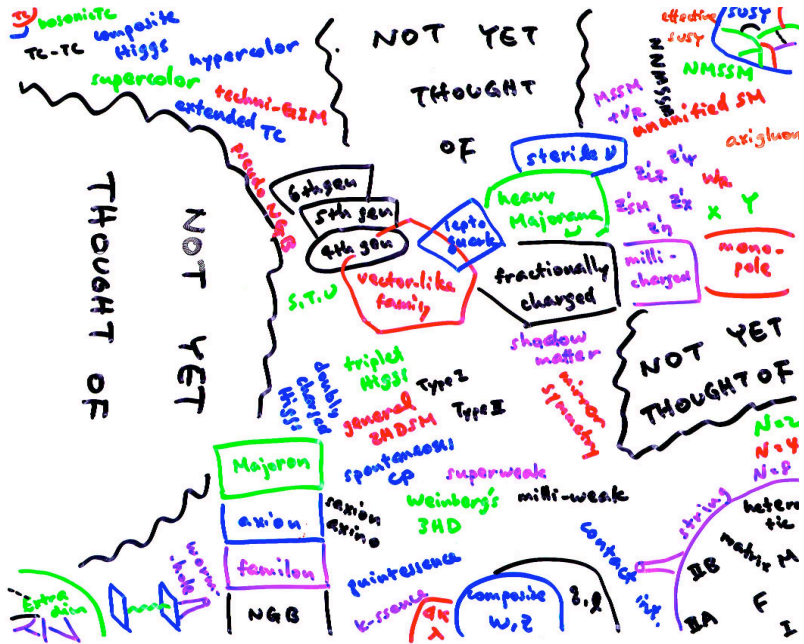 TC
bosonic TC
TC-TC
composite
Higgs
hypercolor
supercolor
techni-GIM
extended TC
pseudo NGB
NOT YET
THOUGHT
OF
NOT YET
THOUGHT OF
effective
SUSY
SUSY
NMSSM
NNMSSM
MSSM
+νR
ununified SM
axigluon
sterile ν
heavy
Majorana ν
Z'LR
Z'ψ
WR
Z'SM
Z'χ
X
Y
Z'η
6th gen
5th gen
4th gen
lepto
quark
vector-like
family
S,T,U
fractionally
charged
milli-
charged
mono-
pole
shadow
matter
mirror
symmetry
NOT YET
THOUGHT OF
triplet
Higgs
doubly
charged
Higgs
Type I
Type II
general
2HDSM
spontaneous
CP
superweak
Weinberg's
3HD
milli-weak
Majoron
axion
familon
NGB
saxion
axino
quintessence
k-ssence
worm-
hole
Extra
dim
composite
W,Z
q,l
contact
int.
N=2
N=4
N=8
string
heterotic
matrix
M
IIB
F
IIA
I